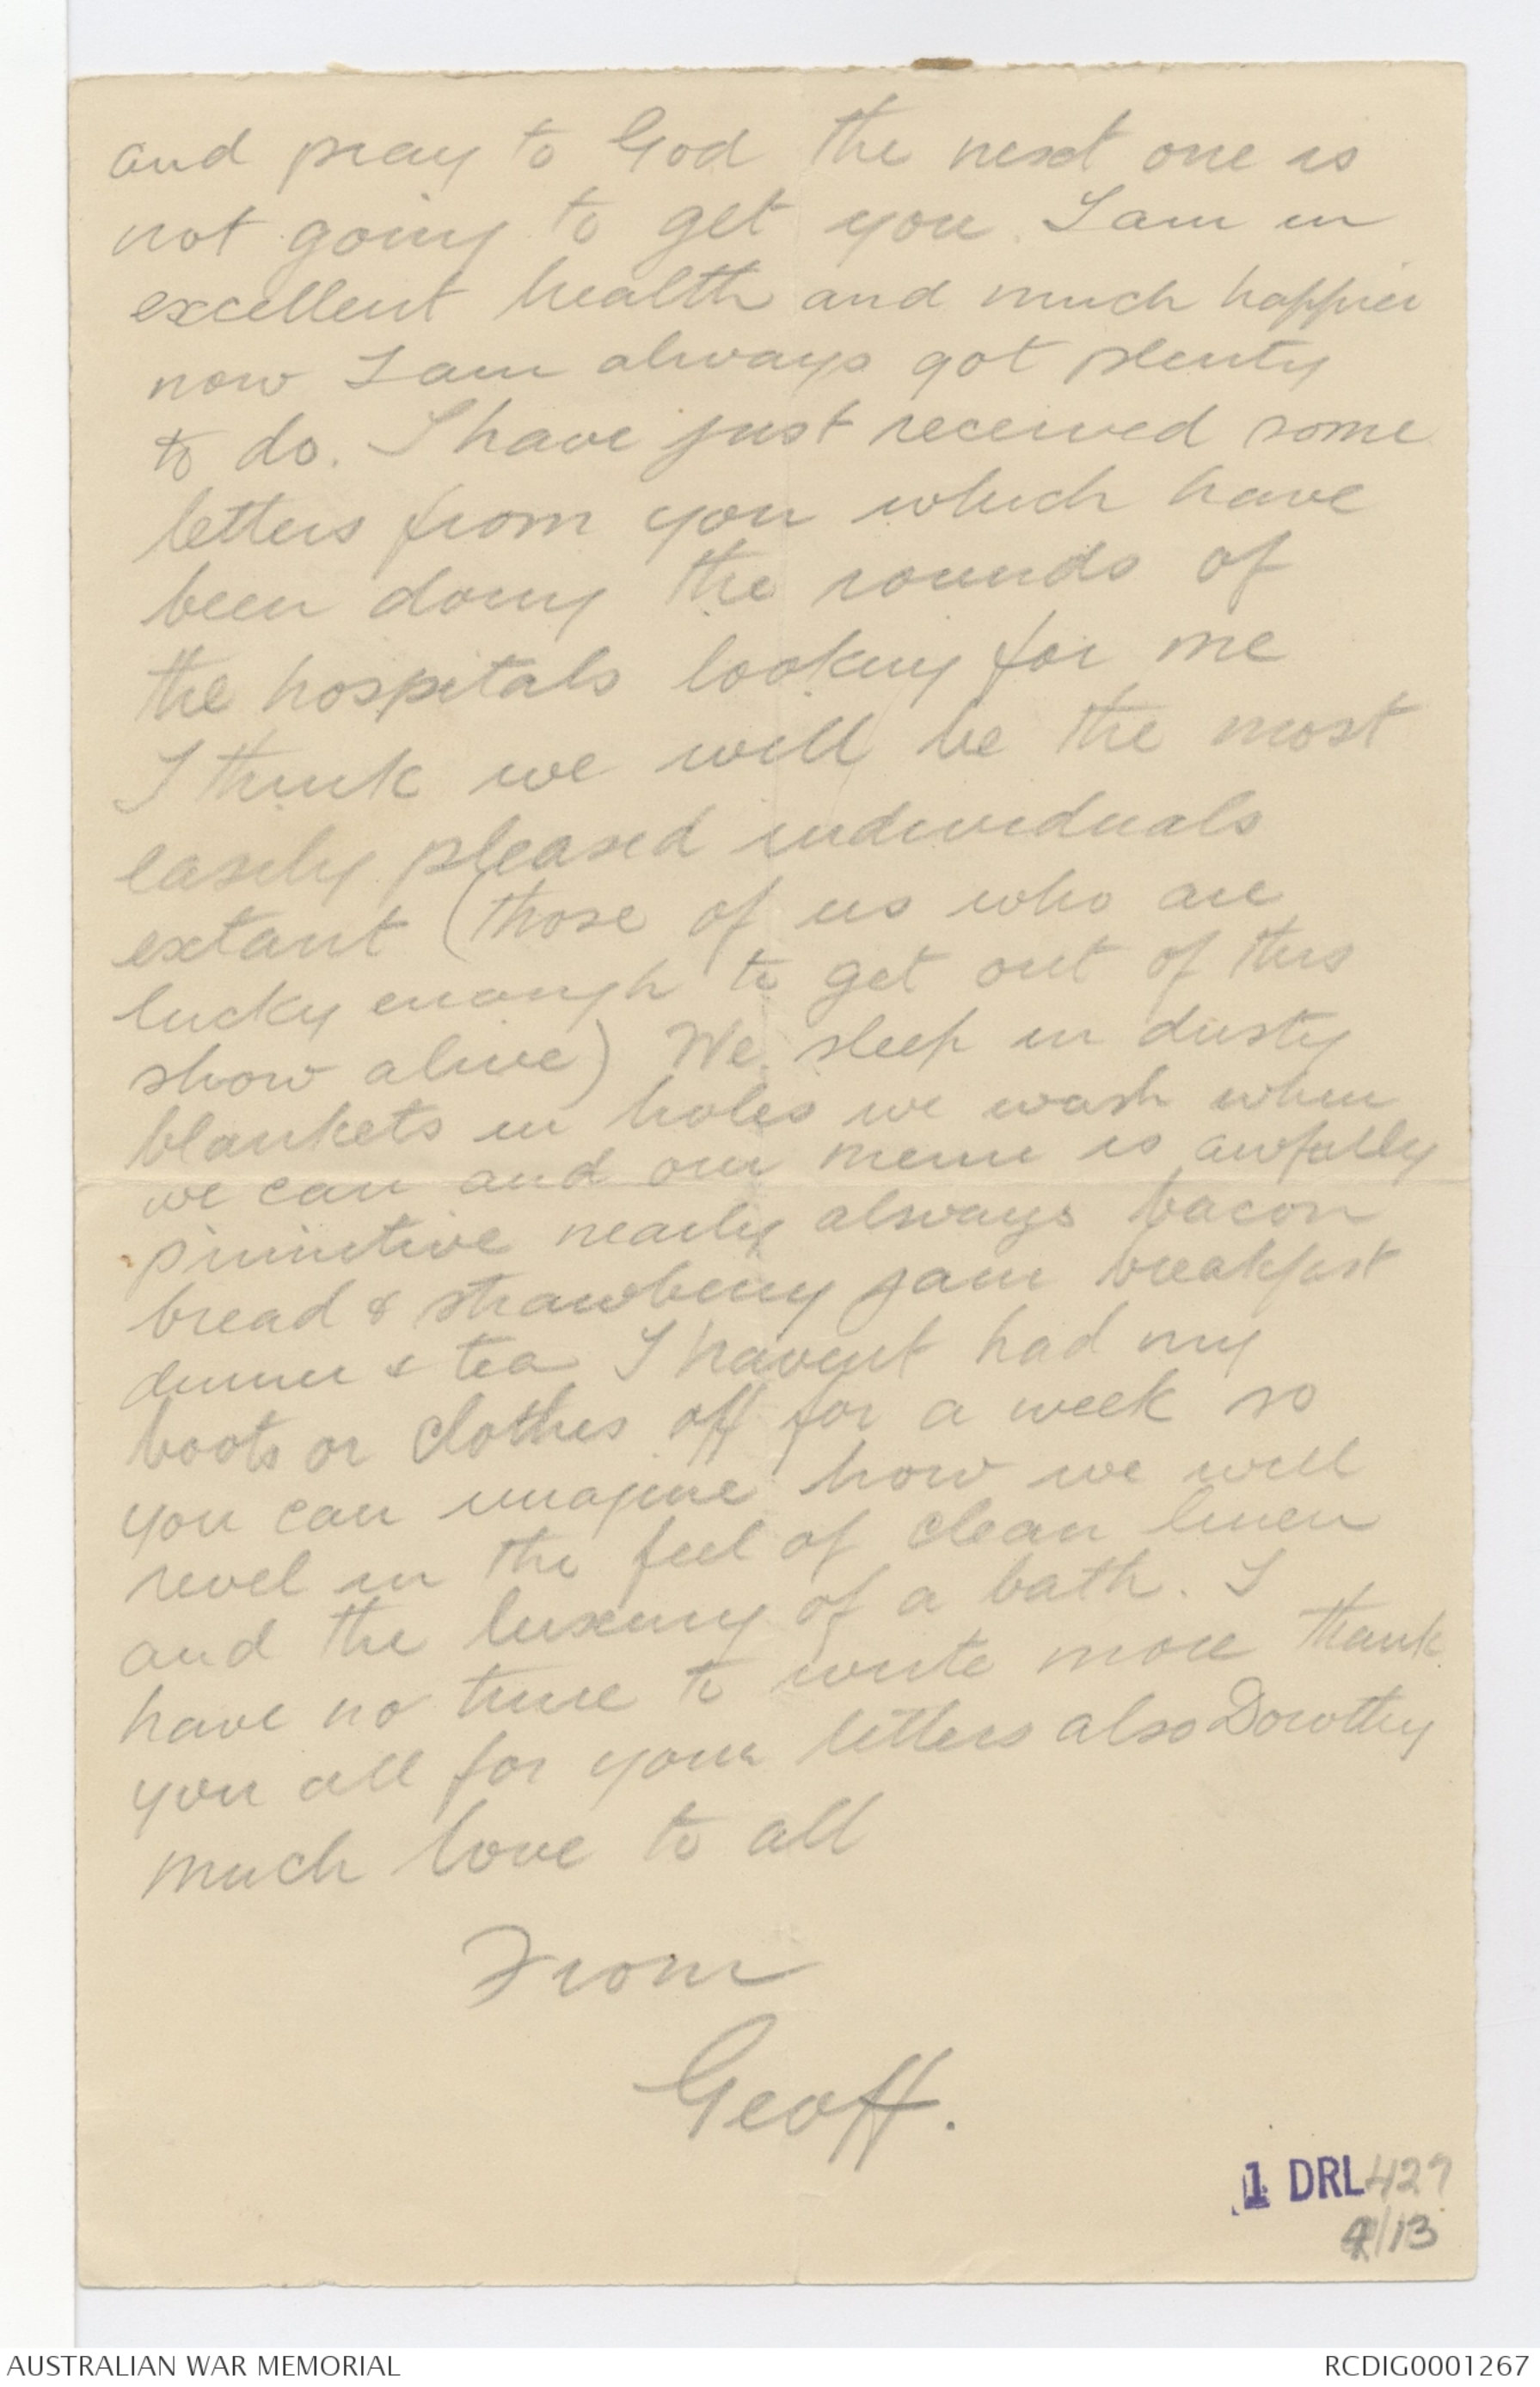 and pray to God the next one is
not going to get you. I am in
excellent health and much happier
now I am always got plenty
to do. I have just received some
letters from you which have
been doing the rounds of
the hospitals looking for me
I think we will be the most
easily pleased individuals
extant (those of us who are
lucky enough to get out of this
show alive) We sleep in dusty
blankets in holes we wash when
we can and our menu is awfully
primitive nearly always bacon
bread & strawberry jam breakfast
dinner & tea I havent had my
boots or clothes off for a week so
you can imagine how we will
revel in the feel of clean linen
and the luxury of a bath. I
have no time to write more thank
you all for your letters also Dorothy
much love to all
From
Geoff.
1 DRL 427
4/13
AUSTRALIAN WAR MEMORIAL
RCDIG0001267